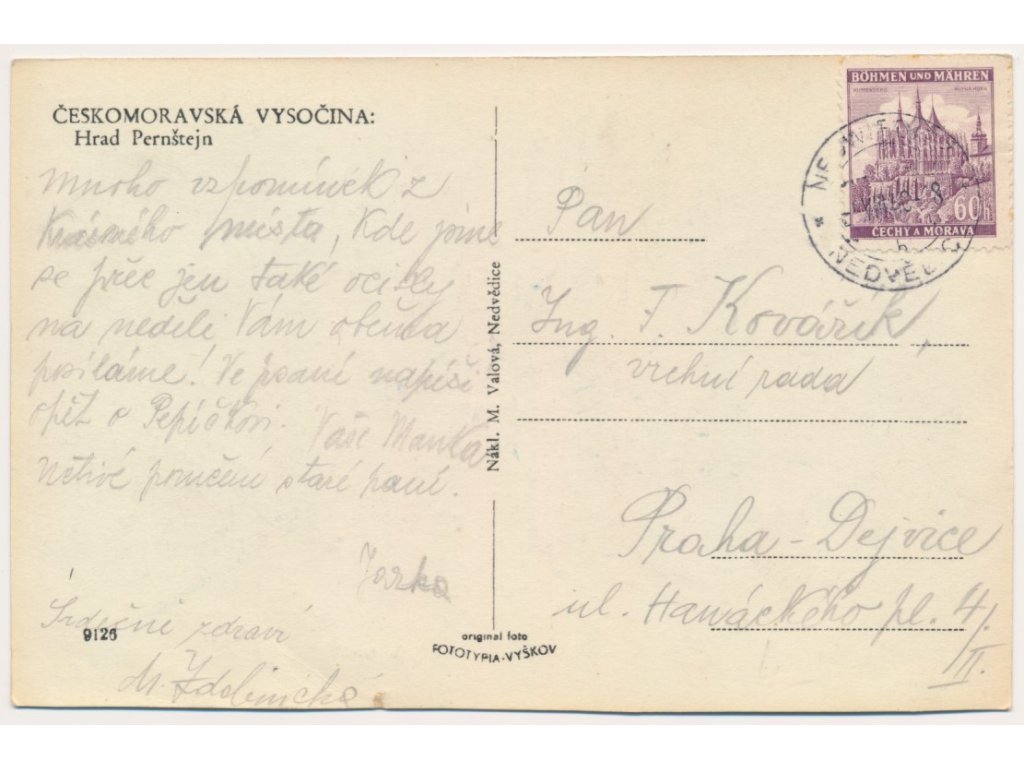 ČESKOMORAVSKÁ VYSOČINA:
Hrad Pernštejn
Mnoho vzpomínek z
Krásného města, Kde jsme
se přec jen také ocitly
na neděli, Vám oběma
posíláme! Ve psaní napíši
opět o Pepíčkovi. Vaše Manka
Uctivé poručení staré paní.
Jarka
Srdečně zdraví
M. Zdobinická
9126
original foto
FOTOTYPIA-VYŠKOV
Nákl. M. Valová, Nedvědice
BÖHMEN UND MÄHREN
60h
ČECHY A MORAVA
NEDVĚDICE
Pan
Ing. F. Kovářík,
vrchní rada
Praha - Dejvice
ul. Hanáckého pl. 4/
II.